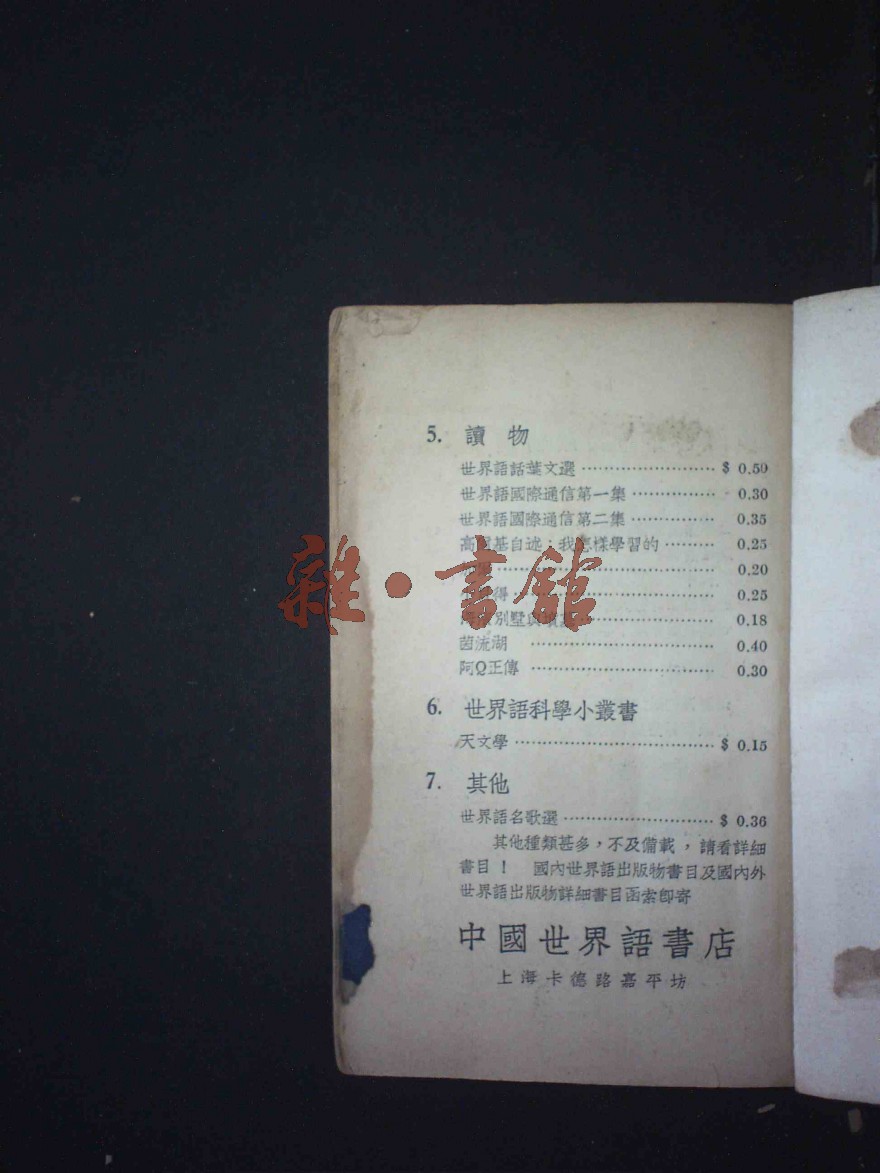 5. 讀物
世界語話葉文選 $ 0.50
世界語國際通信第一集 0.30
世界語國際通信第二集 0.35
高爾基自述：我怎樣學習的 0.25
0.20
得 0.25
別墅與 0.18
茵流湖 0.40
阿Q正傳 0.30
6. 世界語科學小叢書
天文學 $ 0.15
7. 其他
世界語名歌選 $ 0.36
其他種類甚多，不及備載，請看詳細
書目！ 國內世界語出版物書目及國內外
世界語出版物詳細書目函索卽寄
中國世界語書店
上海卡德路嘉平坊
雜·書館